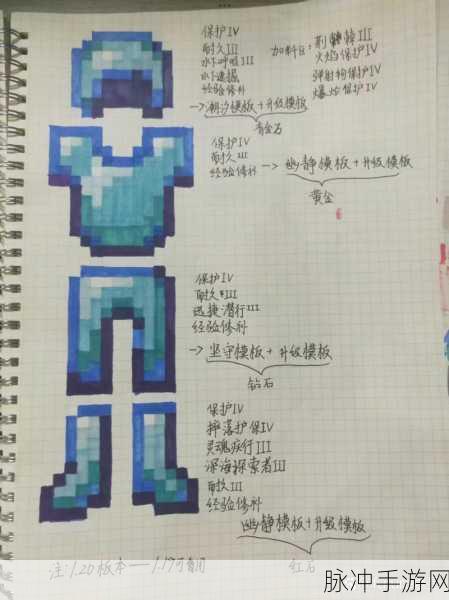 保护IV
耐久III
水下呼吸III
水下速掘
经验修补
加料包：荆棘III
火焰保护IV
弹射物保护IV
爆炸保护IV
→潮汐模板+升级模板
青金石
保护IV
耐久III
经验修补
→幽静模板+升级模板
黄金
保护IV
耐久III
迅捷潜行III
经验修补
→坚守模板+升级模板
钻石
保护IV
摔落护保IV
灵魂疾行III
深海探索者III
耐久III
经验修补
幽静模板+升级模板
红石
注:1.20版本——1.19可省用
脉冲手游网